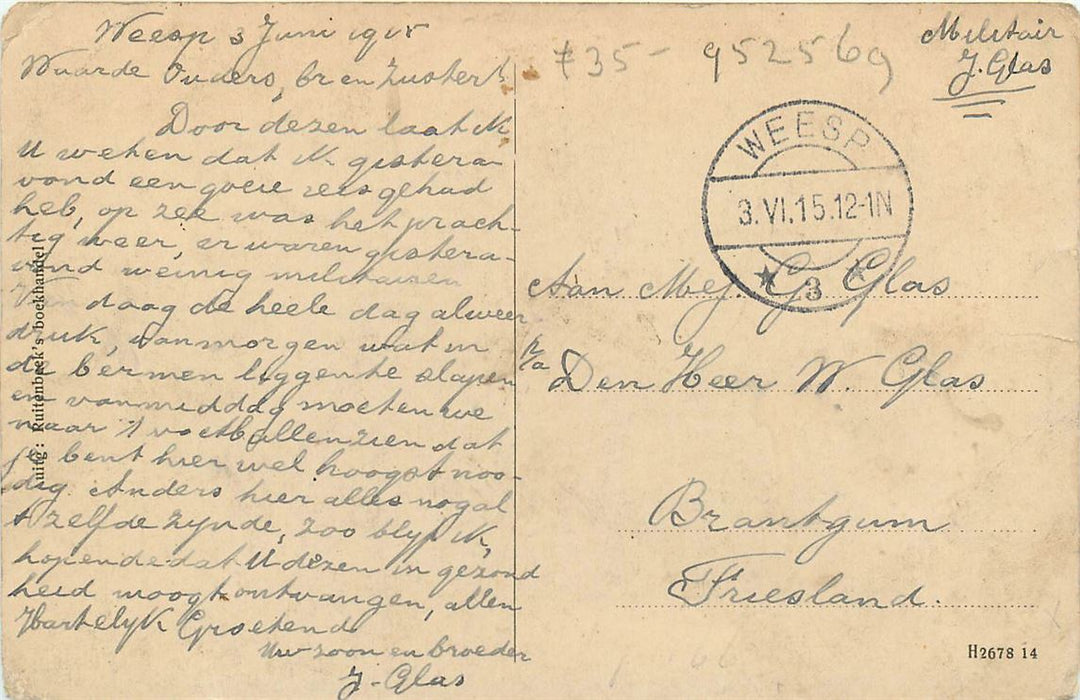 Weesp 3 Juni 1915
Waarde Ouders, br en zusters
Door dezen laat ik
U weten dat ik gistera-
vond een goeie reis gehad
heb, op zee was het prach-
tig weer, er waren gistera-
vond weinig militairen
Van daag de heele dag alweer
druk, vanmorgen wat in
de bermen liggen te slapen
en vanmiddag moeten we
naar 't voetballen zien dat
je bent hier wel hoogst noo-
dig. Anders hier alles nogal
t zelfde zynde, zoo blyf ik,
hopende dat U dezen in gezond
heid moogt ontvangen, allen
Hartelyk Groetend
Uw zoon en broeder
J. Glas
uitg: Ruitenbeek's boekhandel
#35- 952569
Militair
J. Glas
WEESP
3.VI.15.12-1N
3
Aan Mej. G Glas
p/a Den Heer W. Glas
Brantgum
Friesland.
H2678 14